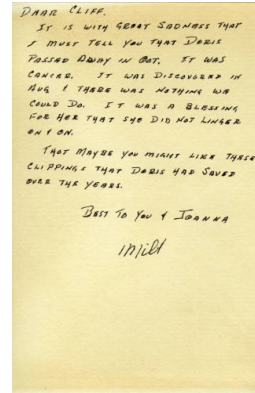 DEAR CLIFF.
IT IS WITH GREAT SADNESS THAT
I MUST TELL YOU THAT DORIS
PASSED AWAY IN OCT. IT WAS
CANCER. IT WAS DISCOVERED IN
AUG & THERE WAS NOTHING WE
COULD DO. IT WAS A BLESSING
FOR HER THAT SHE DID NOT LINGER
ON & ON.
THOT MAYBE YOU MIGHT LIKE THESE
CLIPPINGS THAT DORIS HAD SAVED
OVER THE YEARS.
BEST TO YOU & JOANNA